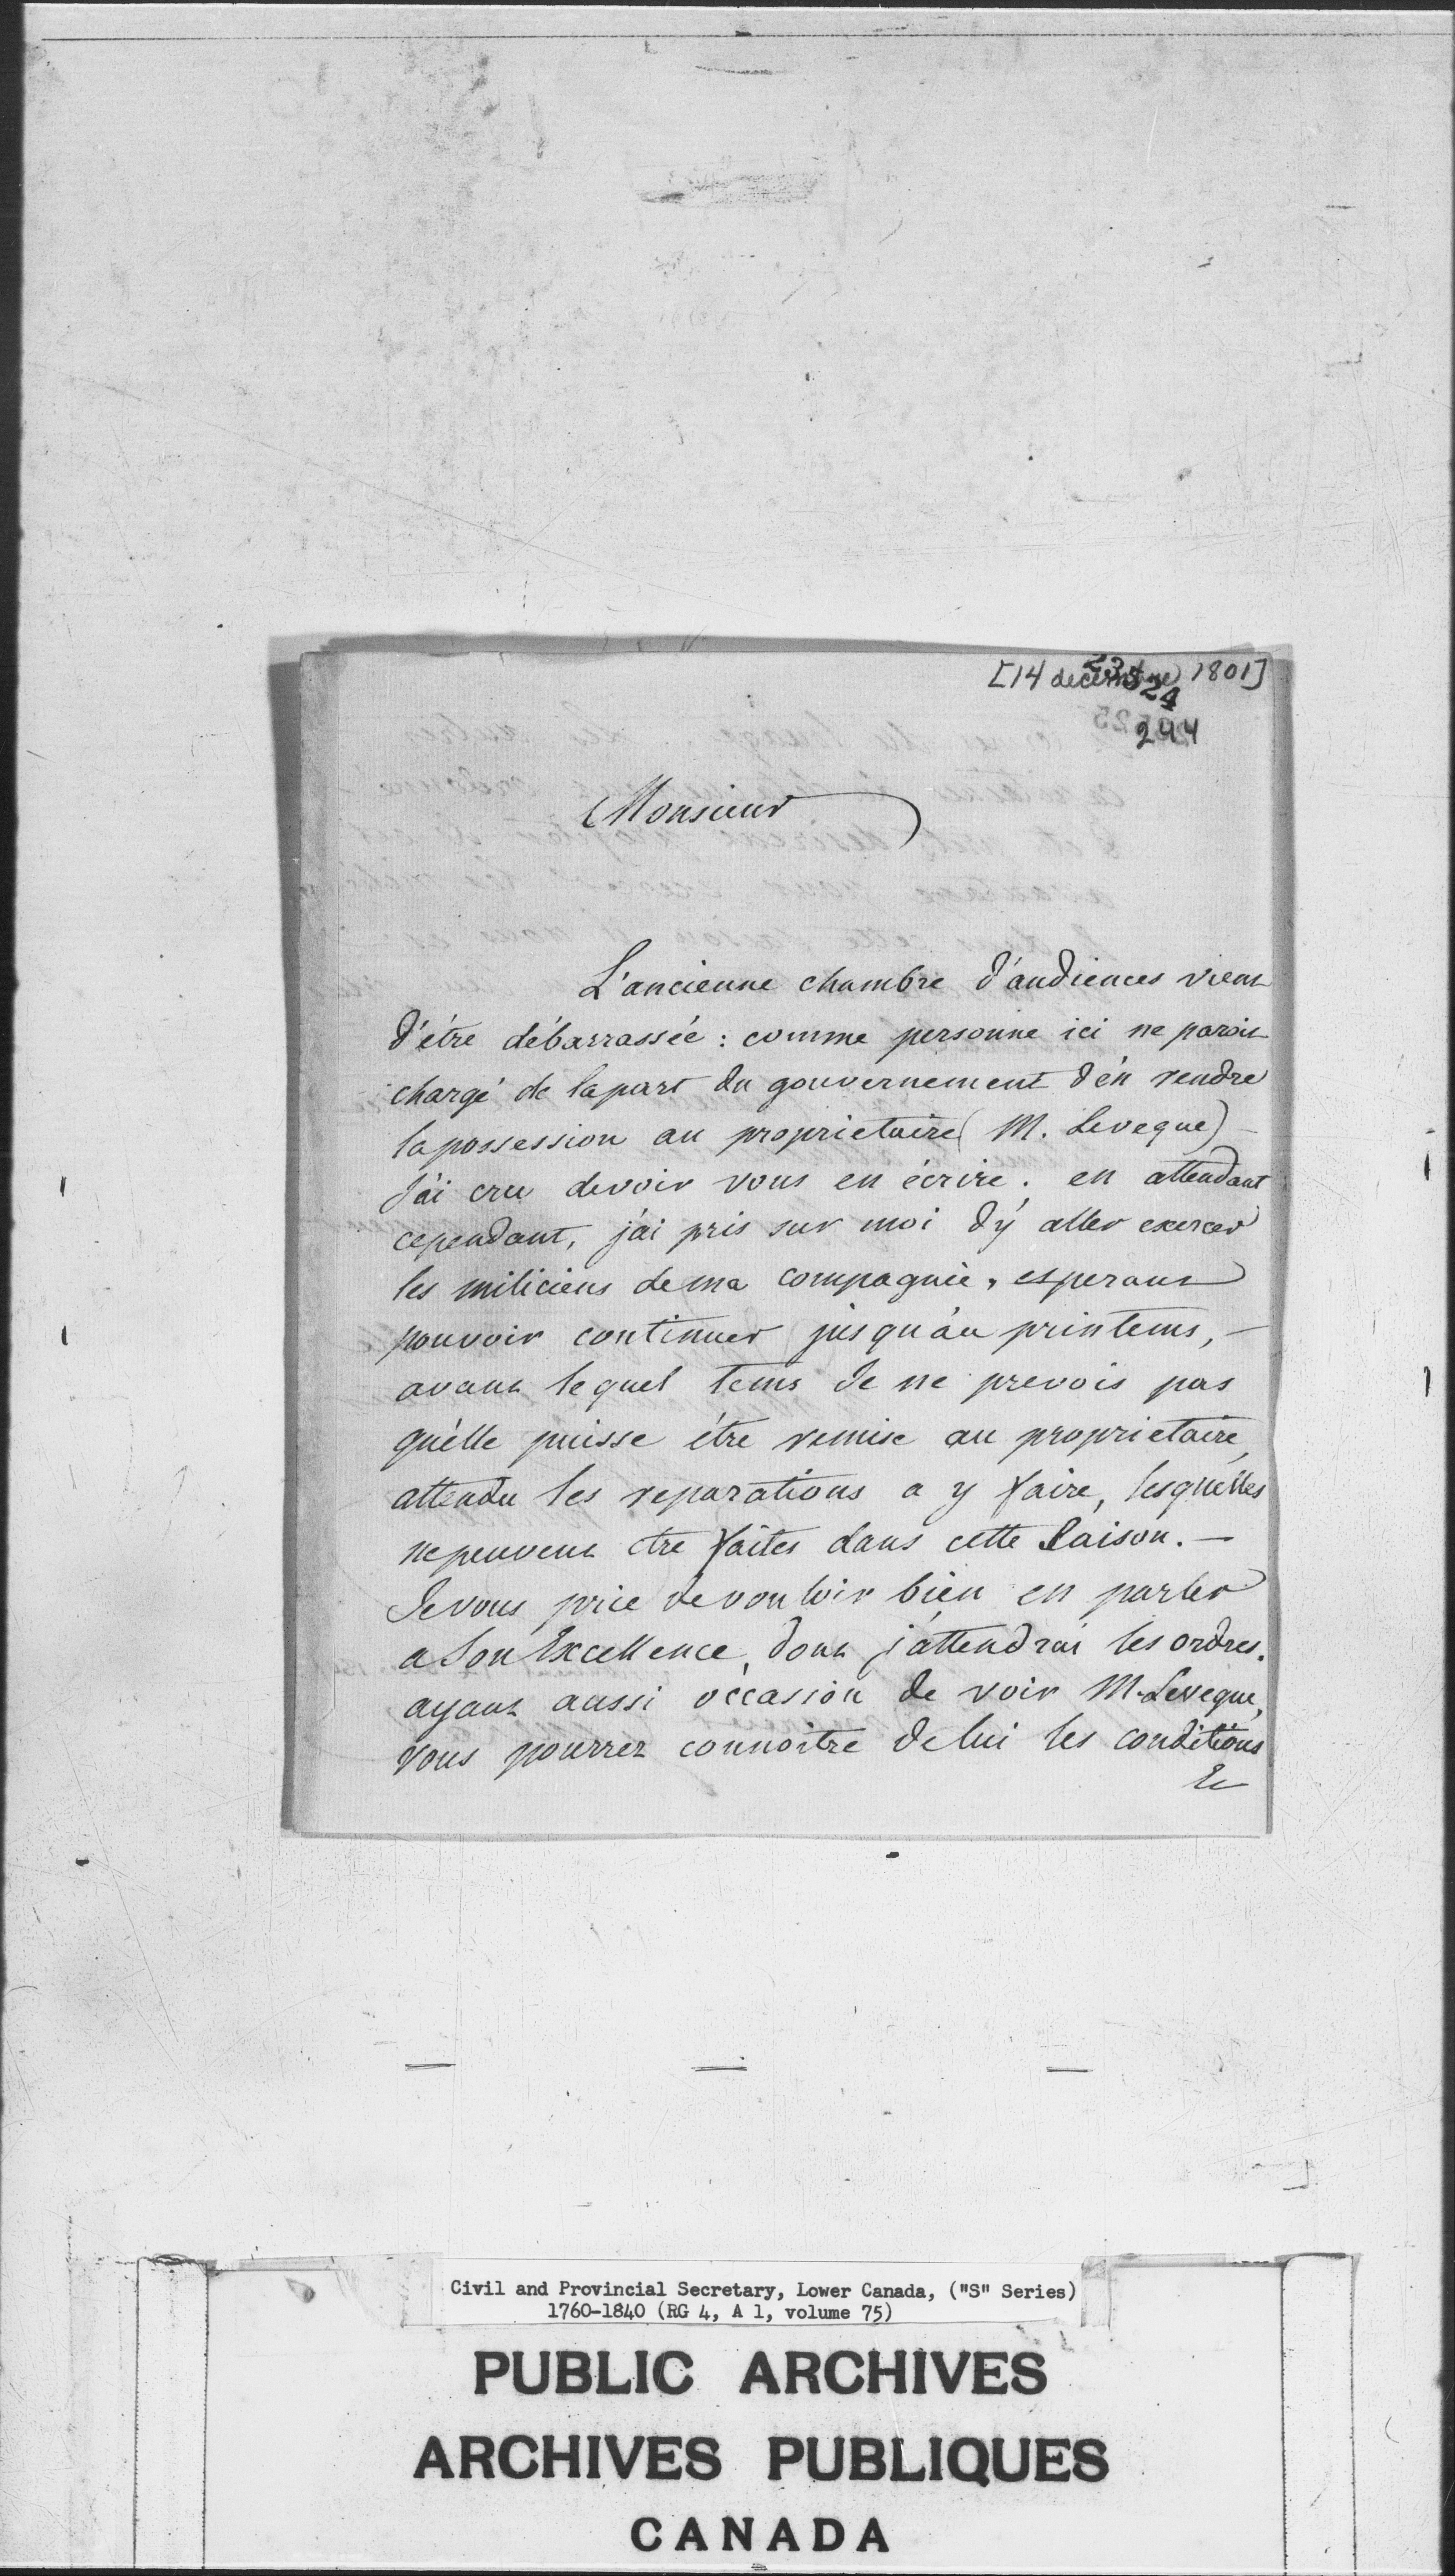 [14 decembre 1801]
23524
244
Monsieur
L'ancienne chambre d'audiences vient
d'être débarrassée : comme personne ici ne paroit
chargé de la part du gouvernement d'en rendre
la possession au proprietaire ( M. Leveque) —
J'ai cru devoir vous en écrire. en attendant
cependant, j'ai pris sur moi d'y aller exercer
les miliciens de ma compagnie, esperant
pouvoir continuer jusqu'au printems, —
avant lequel tems Je ne prevois pas
qu'elle puisse être remise au proprietaire,
attendu les reparations a y faire, lesquelles
ne peuvent etre faites dans cette Saison. —
Je vous prie de vouloir bien en parler
a Son Excellence, dont j'attendrai les ordres.
ayant aussi occasion de voir M. Leveque,
vous pourrez connoitre de lui les conditions
Et
Civil and Provincial Secretary, Lower Canada, ("S" Series)
1760-1840 (RG 4, A 1, volume 75)
PUBLIC ARCHIVES
ARCHIVES PUBLIQUES
CANADA